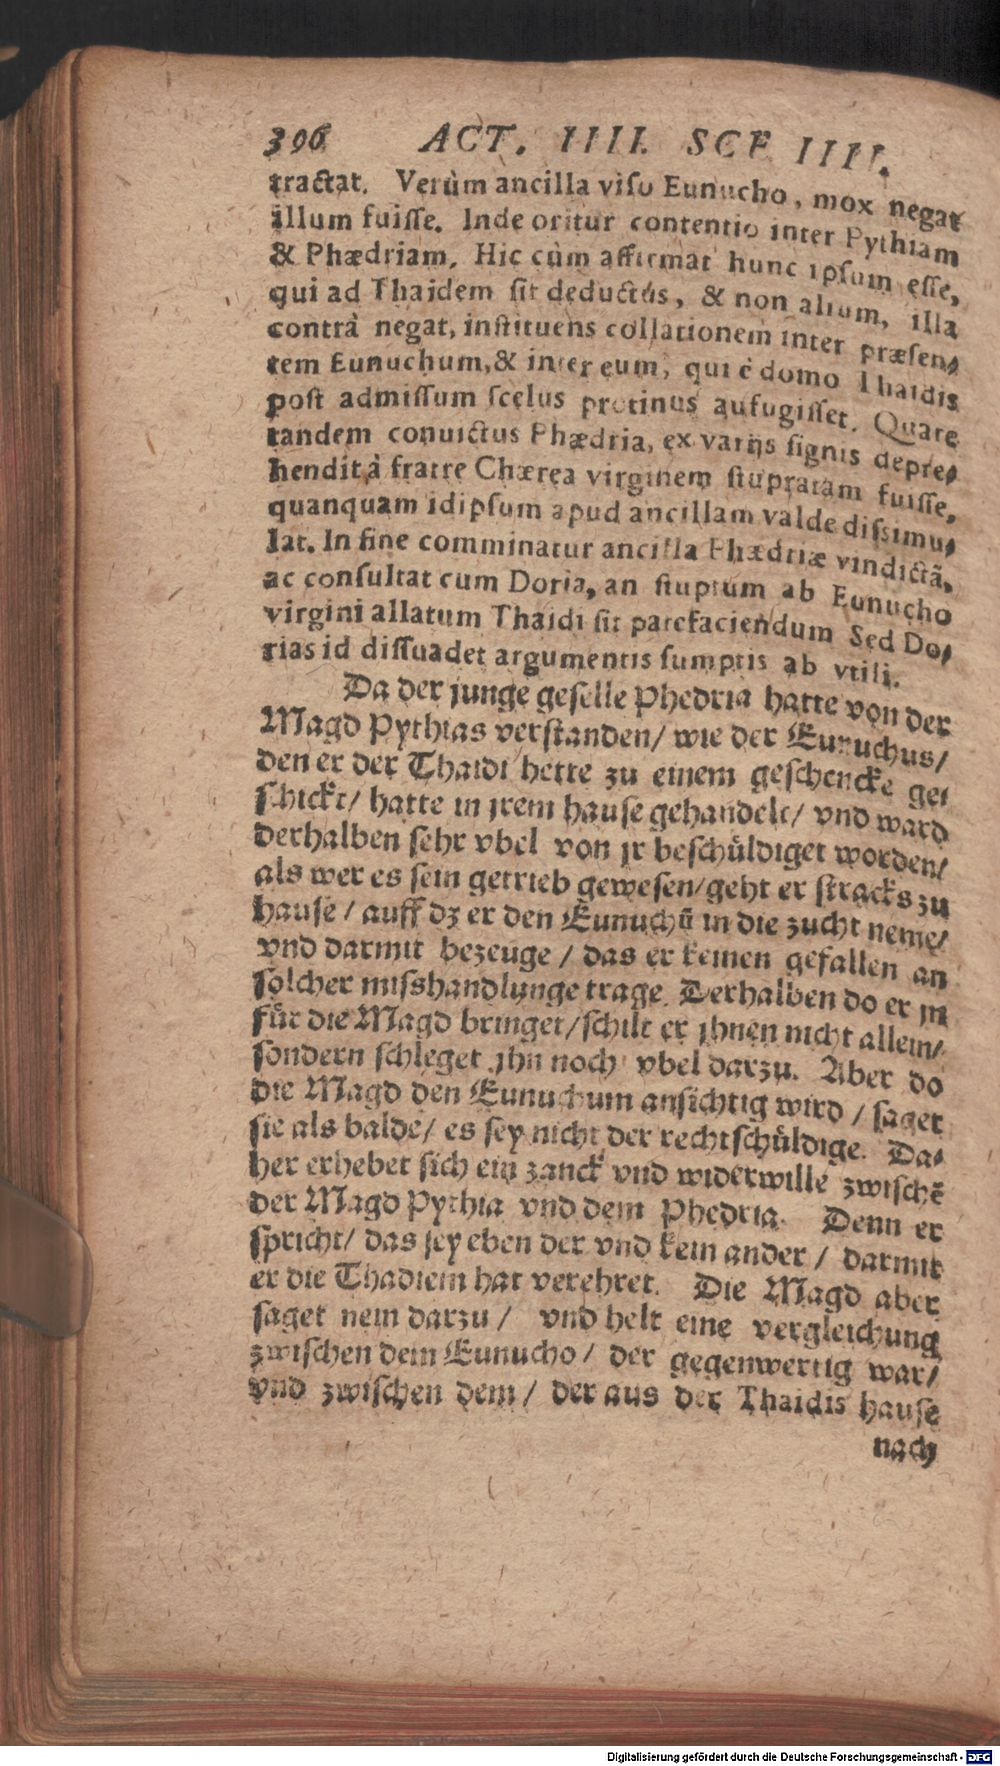 396 ACT. IIII. SCE IIII.
tractat. Verùm ancilla viso Eunucho, mox negat
illum fuisse. Inde oritur contentio inter Pythiam
& Phædriam. Hic cùm affirmat hunc ipsum esse,
qui ad Thaidem sit deductus, & non alium, illa
contrà negat, instituens collationem inter præsen-
tem Eunuchum, & inter eum, qui è domo Thaidis
post admissum scelus protinus aufugisset. Quare
tandem conuictus Phædria, ex varijs signis depre-
hendit, à fratre Chærea virginem stupratam fuisse,
quanquam id ipsum apud ancillam valde dissimu-
lat. In fine comminatur ancilla Phædriæ vindictã,
ac consultat cum Doria, an stuprum ab Eunucho
virgini allatum Thaidi sit patefaciendum Sed Do-
rias id dissuadet argumentis sumptis ab vtili.
Da der junge geselle Phedria hatte von der
Magd Pythias verstanden/ wie der Eunuchus/
den er der Thaidi hette zu einem geschencke ge-
schickt/ hatte in jrem hause gehandelt/ vnd ward
derhalben sehr vbel von jr beschüldiget worden/
als wer es sein getrieb gewesen/ geht er stracks zu
hause / auff dz er den Eunuchũ in die zucht neme/
vnd darmit bezeuge / das er keinen gefallen an
solcher misshandlunge trage. Derhalben do er jn
für die Magd bringet/ schilt er jhnen nicht allein/
sondern schleget jhn noch vbel darzu. Aber do
die Magd den Eunuchum ansichtig wird / saget
sie als balde/ es sey nicht der rechtschüldige. Da-
her erhebet sich ein zanck vnd widerwille zwischẽ
der Magd Pythia vnd dem Phedria. Denn er
spricht/ das sey eben der vnd kein ander / darmit
er die Thadiem hat verehret. Die Magd aber
saget nein darzu / vnd helt eine vergleichung
zwischen dem Eunucho / der gegenwertig war/
vnd zwischen dem / der aus der Thaidis hause
nach
Digitalisierung gefördert durch die Deutsche Forschungsgemeinschaft - DFG